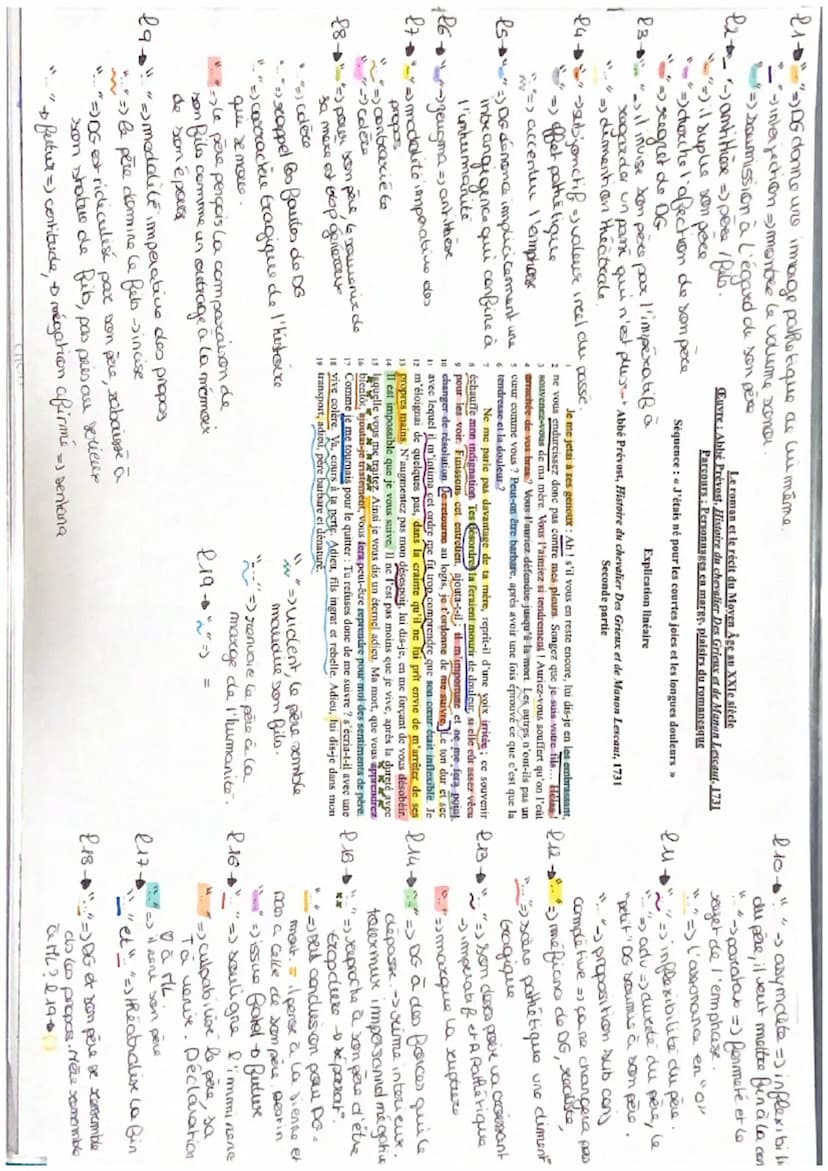 l1 → "..." => DG donne une immage pathétique de lui même.
" " → interjection => montre le volume sonor.
"..." => soumission à l'égard de son père
l2 → "..." → antithèse => père / fils.
"..." => il suplie son père
"..." => touche l'afection de son père
l3 → "..." => regret de DG
"..." => il incise son père par l'impératif à
regarder un passé qui n'est plus
"..." => dimention théâtrale.
l4 → "..." → subjonctif => valeur irréel du passé.
"..." => effet pathétique
"..." => accentue l'emphase
l5 → "..." => DG dénonce implicitement une
intransigeance qui confine à
l'inhumanité
l6 → "..." → zeugma => antithèse
l7 → "..." => modalité impérative des
propos
"..." => contrariété
"..." => colère
l8 → "..." => pour son père, le souvenir de
sa mère est trop généreux
"..." => colère
"..." => rappel les fautes de DG
"..." => caractère tragique de l'histoire
que se marie.
"..." => le père perçois la comparaison de
son fils comme un outrage à la mémoire
de son épouse
l9 → "..." => modalité impérative des propos
"..." => le père domine le fils → incise
"..." => DG est ridiculisé par son père, rabaissé à
son statue de fils, pas pris au sérieux
"..." → futur => certitude, → négation afirmé => sentence
Le roman et le récit du Moyen Âge au XXIe siècle
Œuvre : Abbé Prévost, Histoire du chevalier Des Grieux et de Manon Lescaut, 1731
Parcours : Personnages en marge, plaisirs du romanesque
Séquence : « J'étais né pour les courtes joies et les longues douleurs »
Explication linéaire
Abbé Prévost, Histoire du chevalier Des Grieux et de Manon Lescaut, 1731
Seconde partie
1 Je me jetai à ses genoux : Ah ! s'il vous en reste encore, lui dis-je en les embrassant,
2 ne vous endurcissez donc pas contre mes pleurs. Songez que je suis votre fils... Hélas !
3 souvenez-vous de ma mère. Vous l'aimiez si tendrement ! Auriez-vous souffert qu'on l'eût
4 arrachée de vos bras ? Vous l'auriez défendue jusqu'à la mort. Les autres n'ont-ils pas un
5 cœur comme vous ? Peut-on être barbare, après avoir une fois éprouvé ce que c'est que la
6 tendresse et la douleur ?
7 Ne me parle pas davantage de ta mère, reprit-il d'une voix irritée ; ce souvenir
8 échauffe mon indignation. Tes désordres la feraient mourir de douleur, si elle eût assez vécu
9 pour les voir. Finissons cet entretien, ajouta-t-il ; il m'importune et ne me fera point
10 changer de résolution. Je retourne au logis, je t'ordonne de me suivre. Le ton dur et sec
11 avec lequel il m'intima cet ordre me fit trop comprendre que son cœur était inflexible. Je
12 m'éloignai de quelques pas, dans la crainte qu'il ne lui prît envie de m'arrêter de ses
13 propres mains. N'augmentez pas mon désespoir, lui dis-je, en me forçant de vous désobéir.
14 Il est impossible que je vous suive. Il ne l'est pas moins que je vive, après la dureté avec
15 laquelle vous me traitez. Ainsi je vous dis un éternel adieu. Ma mort, que vous apprendrez
16 bientôt, ajoutai-je tristement, vous fera peut-être reprendre pour moi des sentiments de père.
17 Comme je me tournais pour le quitter : Tu refuses donc de me suivre ? s'écria-t-il avec une
18 vive colère. Va, cours à ta perte. Adieu, fils ingrat et rebelle. Adieu, lui dis-je dans mon
19 transport, adieu, père barbare et dénaturé.
" " => violent, le père semble
maudire son fils.
"....." => renvoie le père à la
marge de l'humanité.
l19 → "..." => =
l10 → "..." → asyndète => inflexibili
du père, il veut mettre fin à la con
"..." → parataxe => fermeté et le
rejet de l'emphase.
"..." => l'assonance en "o"
l11 → "..." => inflexibilité du père.
"..." => adv => dureté du père, le
petit DG soumis à son père.
"..." → proposition sub conj
complétive => ne changera pas
l12 → "..." => méfiance de DG,
"..." => scène pathétique une diment°
tragique
l13 → "..." => son desespoir va croissant
→ impératif et pathétique
"..." => marque la rupture
l14 → "..." => DG a des forces qui le
dépasse → ruine intérieure.
tournure impersonnel négative
l15 → "..." => reproche à son père d'être
trop dure
"..." => seul conclusion pour DG =
mort. = il pense à la sienne et
pas a celle de son père.
"..." => issue fatal → futur
l16 → "..." => souligne l'imminence
"..." => culpabilise le père, sa
† à venir. Déclaration
♡ à ML.
l17 → "..." => il renie son père
"..." et "..." => théâtralise la fin
l18 → "..." => DG et son père se ressemble
ds les propos. Mère ressemble
à ML ? l19 →